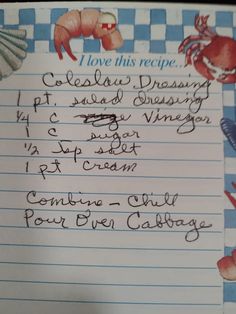 I love this recipe...
Coleslaw Dressing
1 pt. salad dressing
1/4 c Vinegar
1 c sugar
1/2 Tsp salt
1 pt cream
Combine - Chill
Pour Over Cabbage